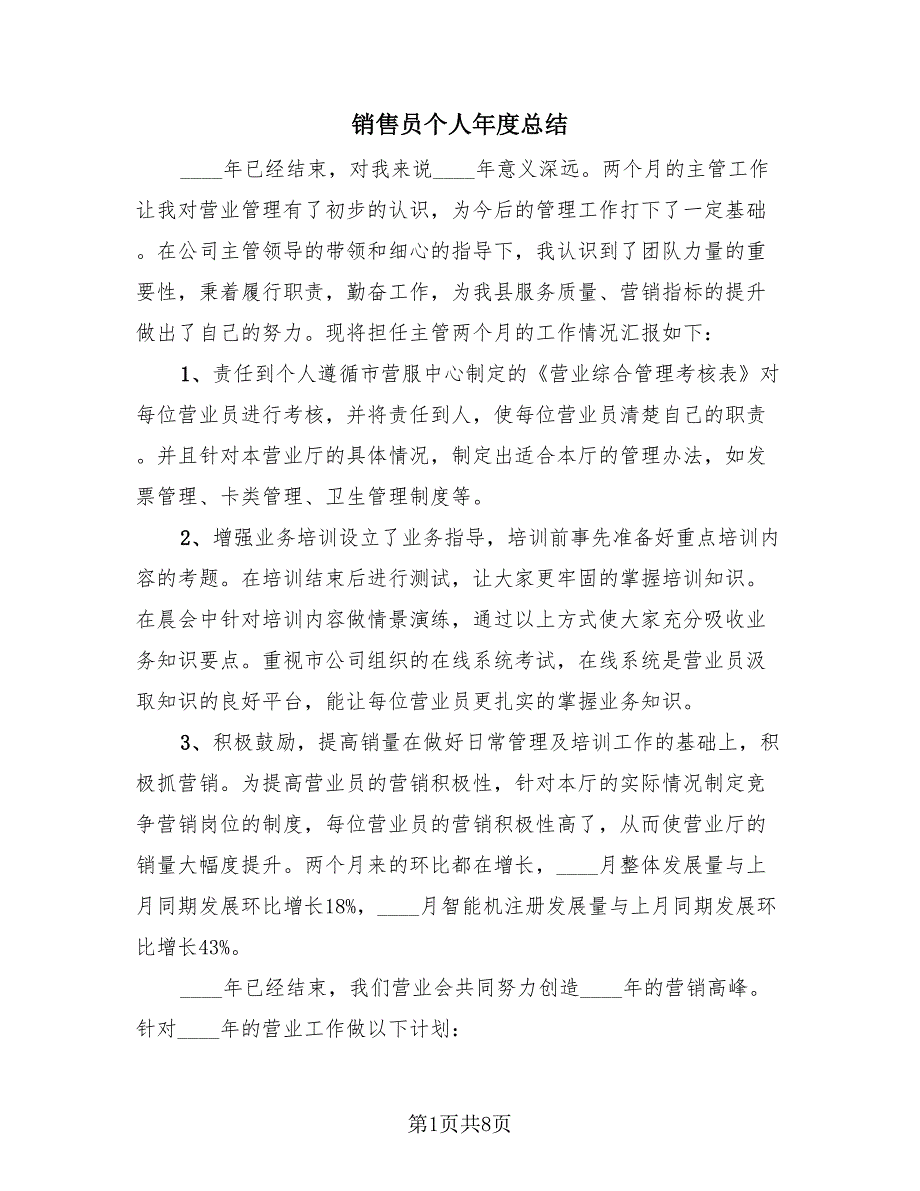 销售员个人年度总结
____年已经结束，对我来说____年意义深远。两个月的主管工作
让我对营业管理有了初步的认识，为今后的管理工作打下了一定基础
。在公司主管领导的带领和细心的指导下，我认识到了团队力量的重
要性，秉着履行职责，勤奋工作，为我县服务质量、营销指标的提升
做出了自己的努力。现将担任主管两个月的工作情况汇报如下：
1、责任到个人遵循市营服中心制定的《营业综合管理考核表》对
每位营业员进行考核，并将责任到人，使每位营业员清楚自己的职责
。并且针对本营业厅的具体情况，制定出适合本厅的管理办法，如发
票管理、卡类管理、卫生管理制度等。
2、增强业务培训设立了业务指导，培训前事先准备好重点培训内
容的考题。在培训结束后进行测试，让大家更牢固的掌握培训知识。
在晨会中针对培训内容做情景演练，通过以上方式使大家充分吸收业
务知识要点。重视市公司组织的在线系统考试，在线系统是营业员汲
取知识的良好平台，能让每位营业员更扎实的掌握业务知识。
3、积极鼓励，提高销量在做好日常管理及培训工作的基础上，积
极抓营销。为提高营业员的营销积极性，针对本厅的实际情况制定竞
争营销岗位的制度，每位营业员的营销积极性高了，从而使营业厅的
销量大幅度提升。两个月来的环比都在增长，____月整体发展量与上
月同期发展环比增长18%，____月智能机注册发展量与上月同期发展环
比增长43%。
____年已经结束，我们营业会共同努力创造____年的营销高峰。
针对____年的营业工作做以下计划：
第1页共8页